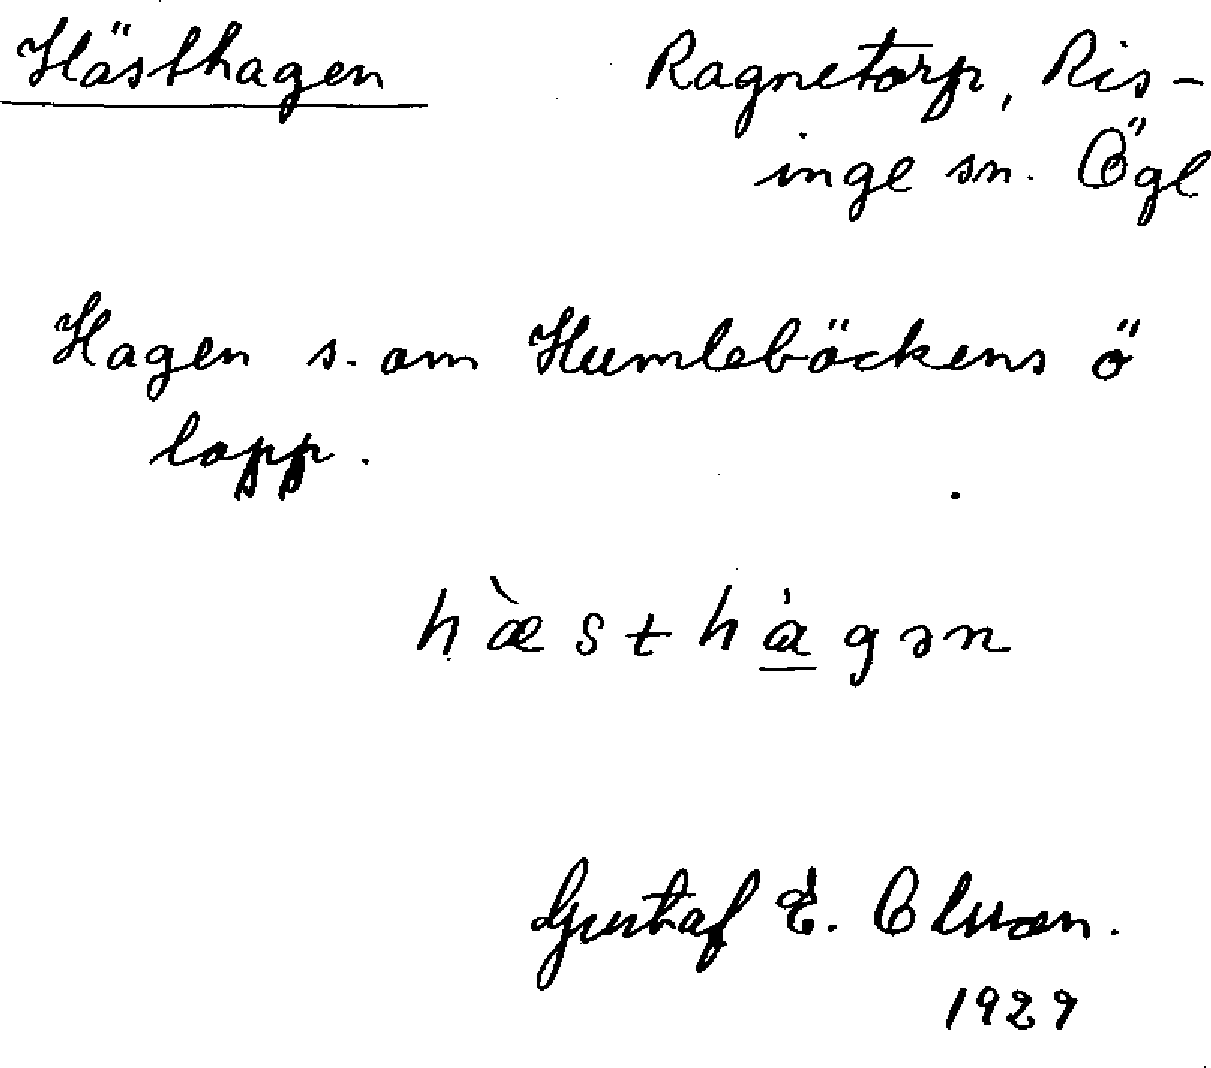 Hästhagen Ragnetorp, Ris-
inge sn. Ögl
Hagen s. om Humlebäckens ö
lopp.
hæ̀sthа̲̍gən
Gustaf E. Olsson.
1929